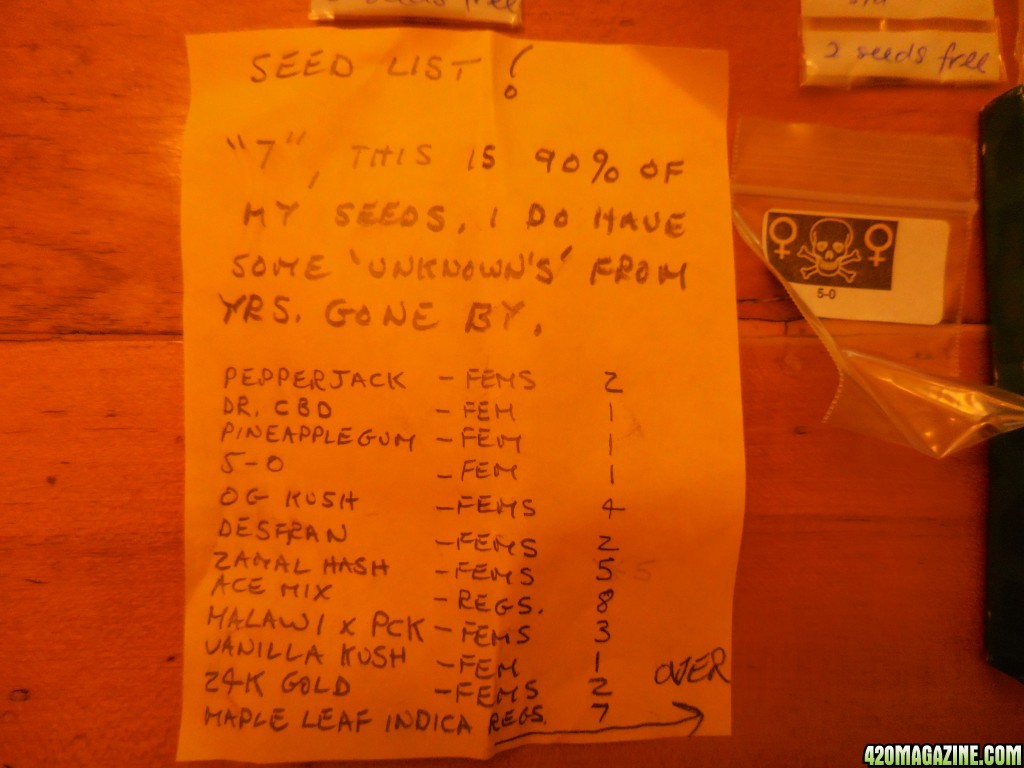 seeds free
2 seeds free
SEED LIST!
"7", THIS IS 90% OF
MY SEEDS, I DO HAVE
SOME 'UNKNOWN'S' FROM
YRS. GONE BY.
5-0
PEPPERJACK - FEMS 2
DR. CBD - FEM 1
PINEAPPLEGUM - FEM 1
5-0 - FEM 1
OG KUSH - FEMS 4
DESFRAN - FEMS 2
ZAMAL HASH - FEMS 5
ACE MIX - REGS. 8
MALAWI X PCK - FEMS 3
VANILLA KUSH - FEM 1
24K GOLD - FEMS 2
MAPLE LEAF INDICA REGS. 7
OVER
420MAGAZINE.COM